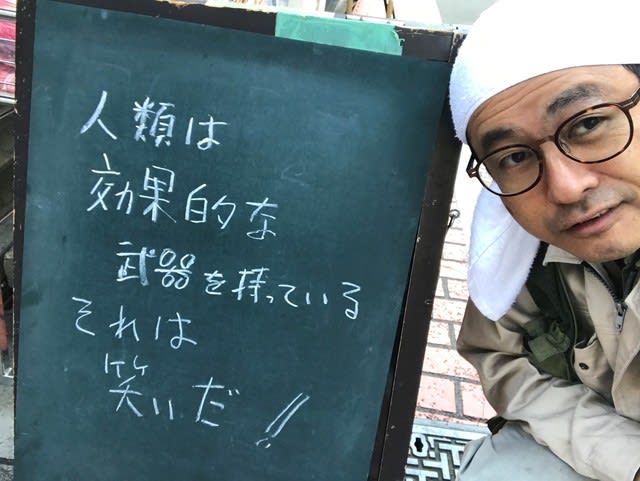 人類は
効果的な
武器を持っている
それは
笑いだ!!